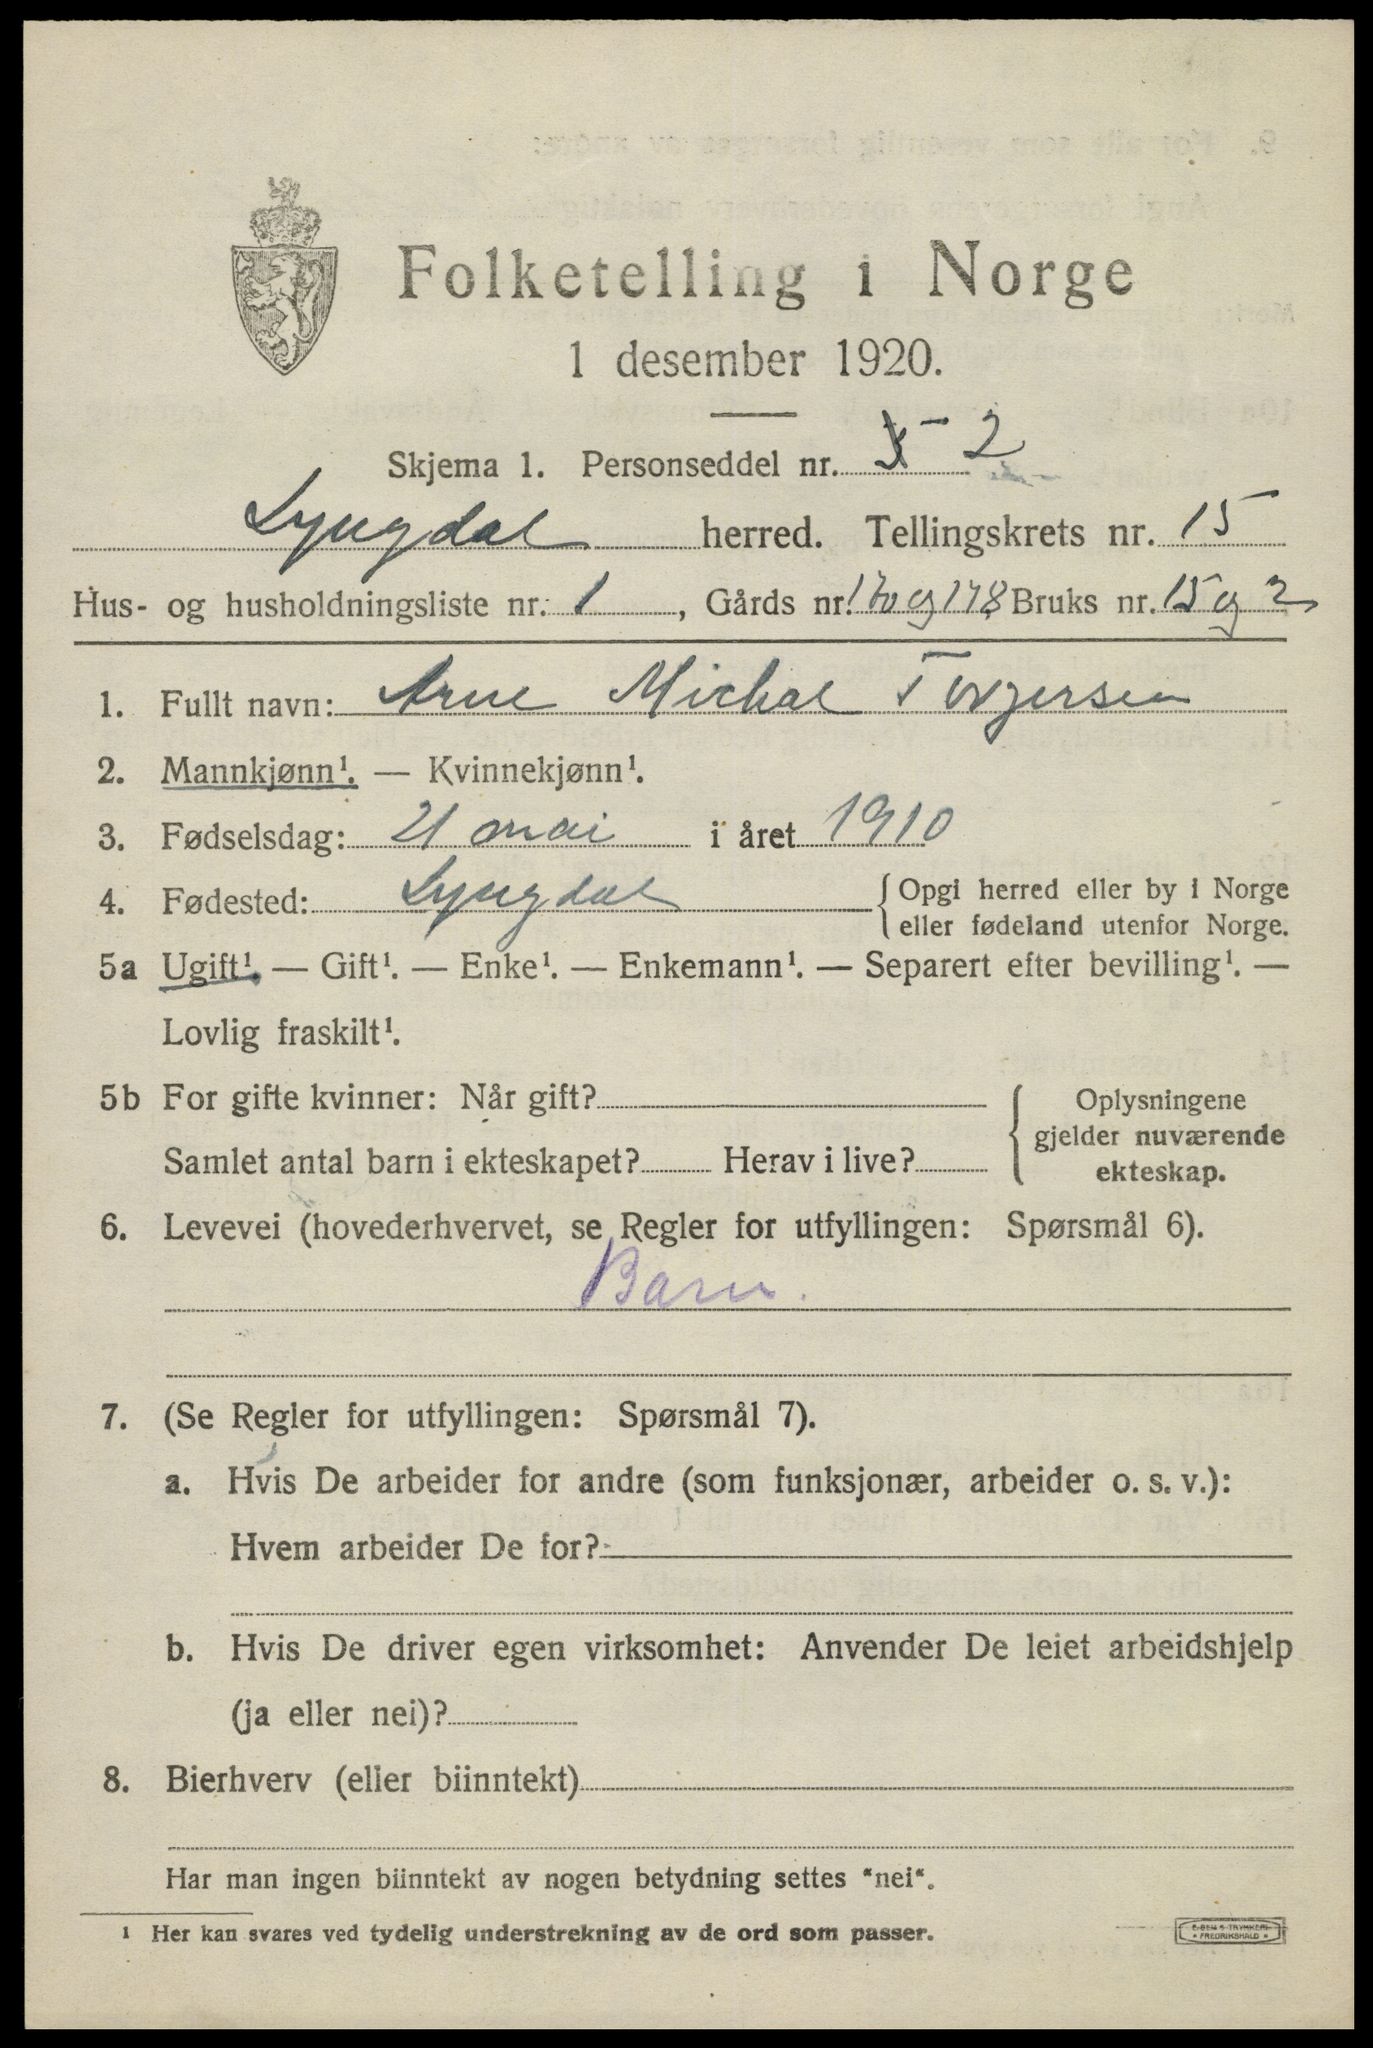 Folketelling i Norge
1 desember 1920.
Skjema 1. Personseddel nr. 2
Lyngdal herred. Tellingskrets nr. 15
Hus- og husholdningsliste nr. 1, Gårds nr. 170 og 178 Bruks nr. 15 og 2
1. Fullt navn: Arne Michal Torgersen
2. Mannkjønn¹. — Kvinnekjønn¹.
3. Fødselsdag: 21 mai i året 1910
4. Fødested: Lyngdal { Opgi herred eller by i Norge
eller fødeland utenfor Norge.
5a Ugift¹. — Gift¹. — Enke¹. — Enkemann¹. — Separert efter bevilling¹. —
Lovlig fraskilt¹.
5b For gifte kvinner: Når gift? { Oplysningene
gjelder nuværende
Samlet antal barn i ekteskapet? Herav i live? ekteskap.
6. Levevei (hovederhvervet, se Regler for utfyllingen: Spørsmål 6).
Barn.
7. (Se Regler for utfyllingen: Spørsmål 7).
a. Hvis De arbeider for andre (som funksjonær, arbeider o. s. v.):
Hvem arbeider De for?
b. Hvis De driver egen virksomhet: Anvender De leiet arbeidshjelp
(ja eller nei)?
8. Bierhverv (eller biinntekt)
Har man ingen biinntekt av nogen betydning settes "nei".
¹ Her kan svares ved tydelig understrekning av de ord som passer.
FREDRIKSHALD